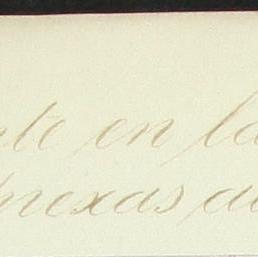 nte en la
anexas a